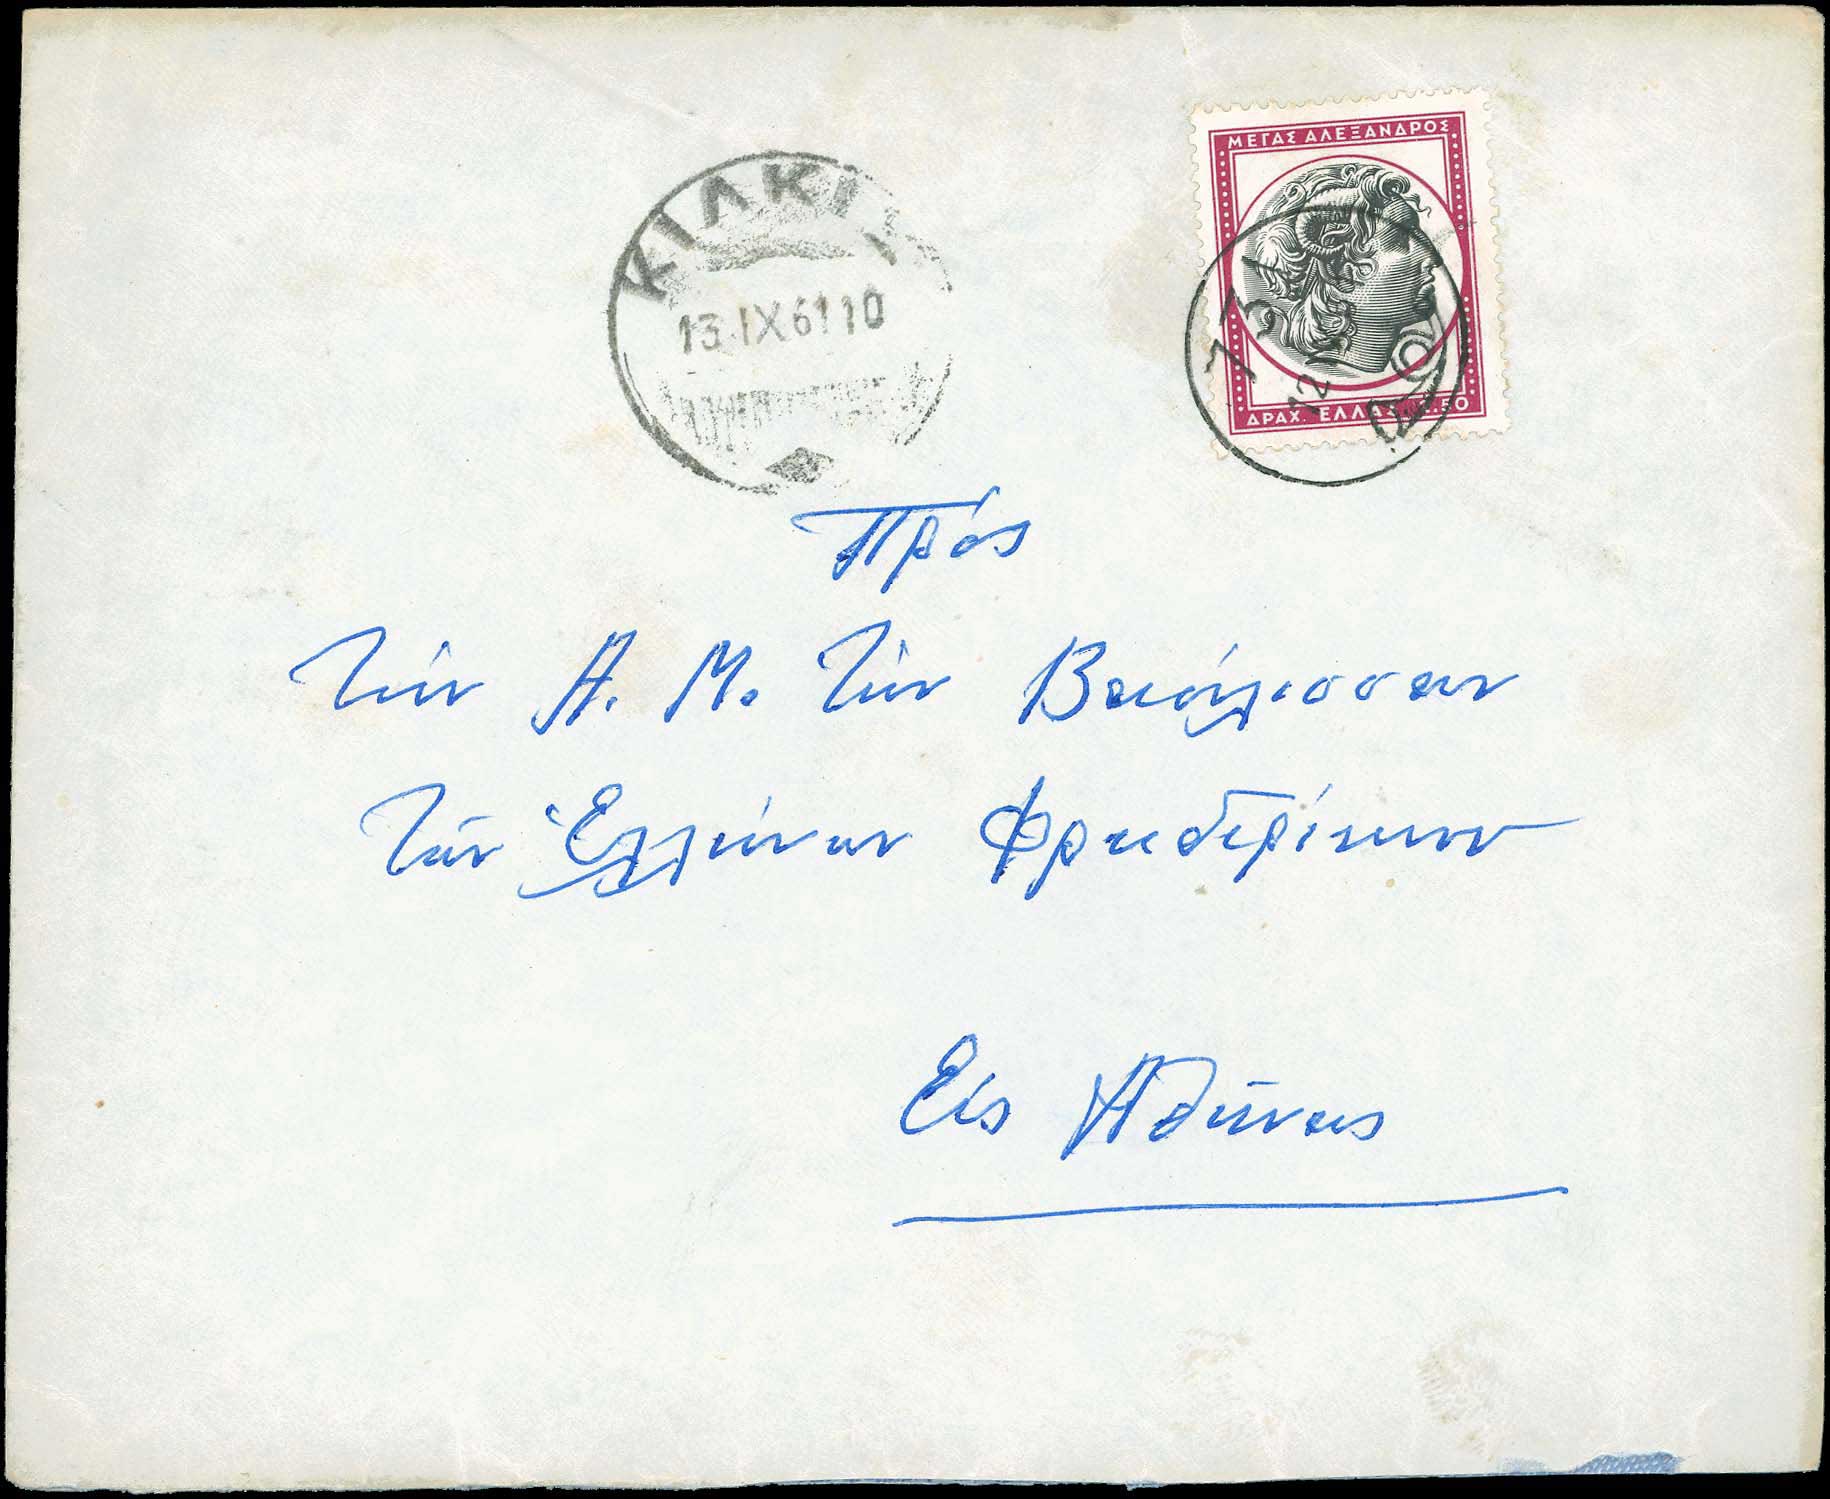 ΜΕΓΑΣ ΑΛΕΞΑΝΔΡΟΣ
ΔΡΑΧ. ΕΛΛΑΣ .50
731
12
ΚΙΛΚΙ
13.IX.61 10
Πρός
Τήν Α. Μ. τήν Βασίλισσαν
τῶν Ἑλλήνων Φρειδερίκην
Εἰς Ἀθήνας